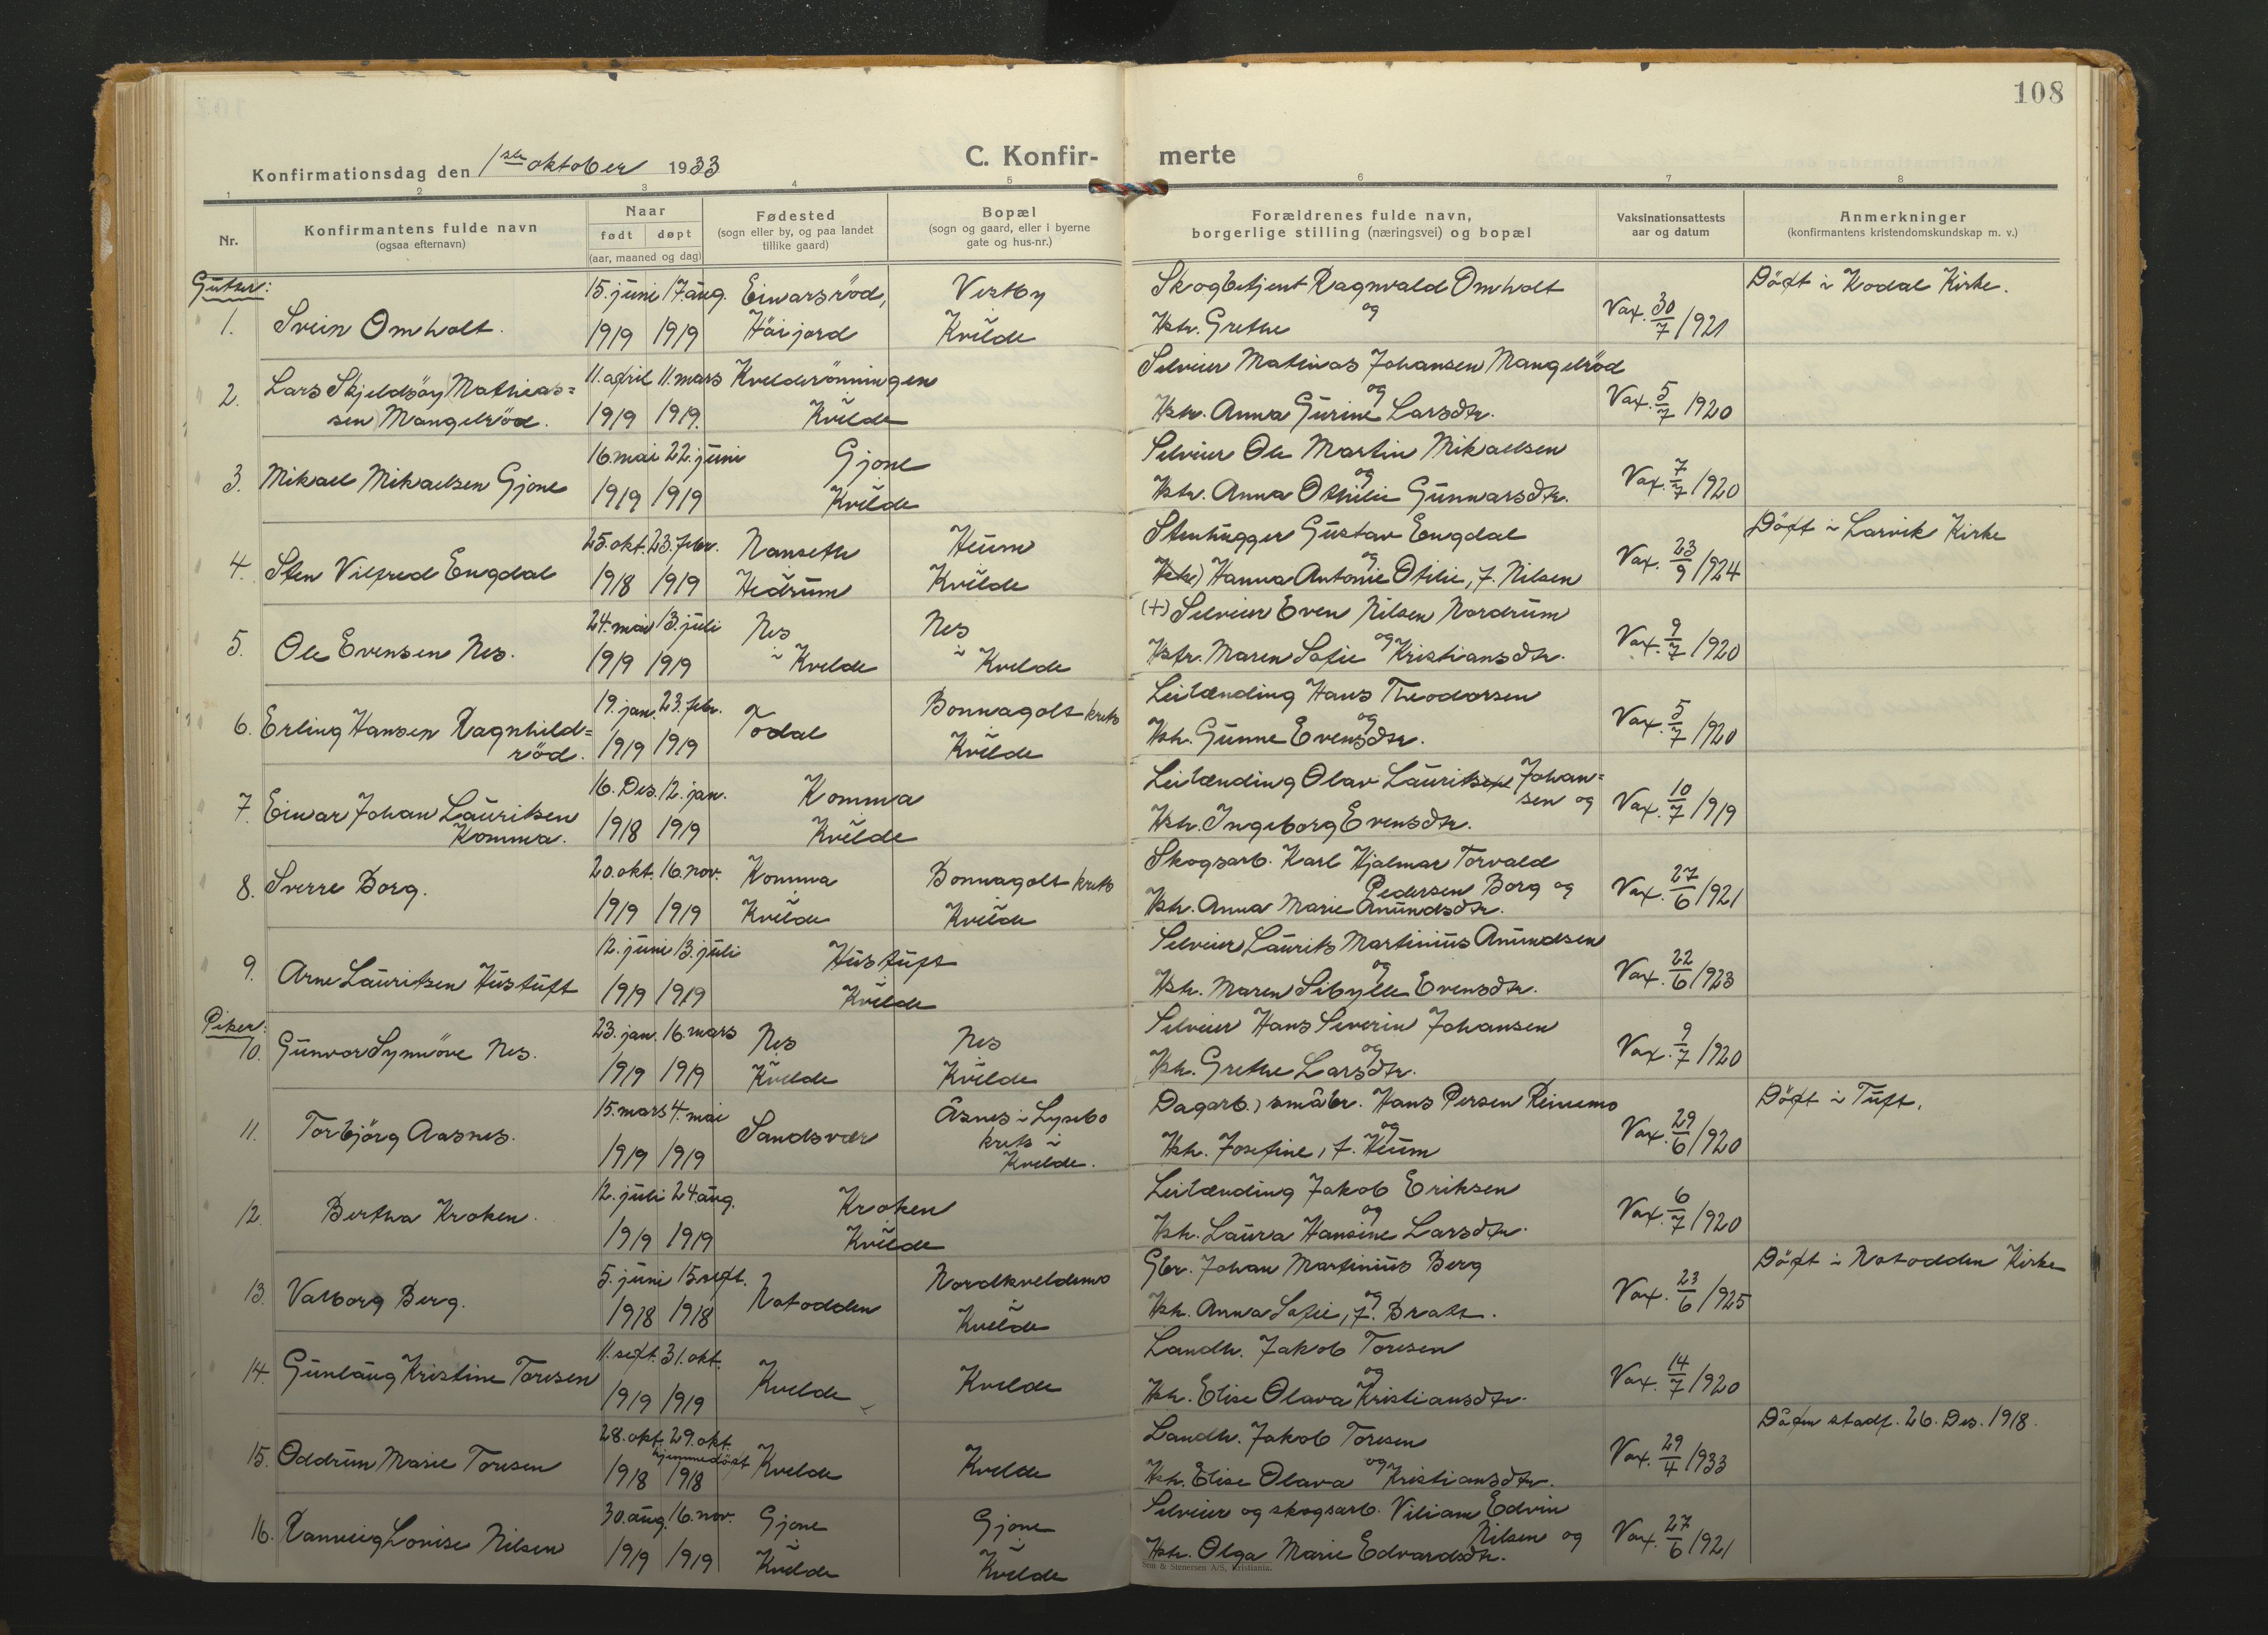 108
C. Konfir- merte
Konfirmationsdag den 1ste oktober 1933
1 2 3 4 5 6 7 8
Nr.
Konfirmantens fulde navn
(ogsaa efternavn)
Naar
født døpt
(aar, maaned og dag)
Fødested
(sogn eller by, og paa landet
tillike gaard)
Bopæl
(sogn og gaard, eller i byerne
gate og hus-nr.)
Forældrenes fulde navn,
borgerlige stilling (næringsvei) og bopæl
Vaksinationsattests
aar og datum
Anmerkninger
(konfirmantens kristendomskundskap m. v.)
Gutter:
15. juni 17. aug. Einarsröd, Vestby Skogbetjent Ragnvald Omholt Döpt i Kodal Kirke.
1. Svein Omholt. 1919 1919 Häijord Kvelde og Hstr. Grethe Vax. 30/7 1921
2. Lars Skjeldsöy Mathias= 11. april 11. mars Kvelderönningen Selveier Matinas Johansen Mangelröd
sen Mangelröd. 1919 1919. Kvelde og Hstr. Anna Gurine Larsdtr. Vax. 5/7 1920
16. mai 22. juni Gjone Selveier Ole Martin Mikaelsen
3. Mikael Mikaelsen Gjone 1919 1919 Kvelde og Hstr. Anna Othilie Gunnarsdtr. Vax. 7/7 1920
25. okt. 23. febr. Nanseth Heum Stenhugger Gustav Engdal Döpt i Larvik Kirke
4. Sten Vilfred Engdal 1918 1919 Hedrum Kvelde og Hstr. Hanna Antonie Otilie, f. Nilsen Vax. 23/9 1924
24. mai 13. juli Nes Nes (+) Selveier Even Nilsen Nordrum
5. Ole Evensen Nes. 1919 1919 i Kvelde i Kvelde og Hstr. Maren Sofie Kristiansdtr. Vax. 9/7 1920
19. jan. 23. febr. Todal Bonnagolt krets Leilænding Hans Theodorsen
6. Erling Hansen Ragnhild=
röd. 1919 1919 Kvelde og Hstr. Gunne Evensdtr. Vax. 5/7 1920
16. Des. 12. jan. Komma Leilænding Olav Lauritsen Johan=
sen og
7. Einar Johan Lauritsen
Komma. 1918 1919 Kvelde Hstr. Ingeborg Evensdtr. Vax. 10/7 1919
20. okt. 16. nov. Komma Bonnagolt krets Skogsarb. Karl Hjalmar Torvald
8. Sverre Borg. Pedersen Borg og
1919 1919 Kvelde Kvelde Hstr. Anna Marie Amundsdtr. Vax. 27/6 1921
12. juni 13. juli Hustuft Selveier Laurits Martinius Amundsen
9. Arne Lauritsen Hustuft 1919 1919 Kvelde og Hstr. Maren Sibylle Evensdtr. Vax. 22/6 1923
Piker:
23. jan. 16. mars Nes Nes Selveier Hans Severin Johansen
10. Gunvor Synnöve Nes. 1919 1919 Kvelde Kvelde og Hstr. Grethe Larsdtr. Vax. 9/7 1920
15. mars 4. mai Sandsvær Åsnes i Lysebo Dagarb., småbr. Hans Persen Reinemo Döpt i Tuft.
11. Torbjörg Aasnes. krets i
1919 1919 Kvelde. og Hstr. Josefine, f. Heum Vax. 29/6 1920
12. juli 24. aug. Kroken Leilænding Jakob Eriksen
12. Bertha Kroken. 1919 1919 Kvelde og Hstr. Laura Hansine Larsdtr. Vax. 6/7 1920
5. juni 15. sept. Notodden Nordkveldemo Gbr. Johan Martinius Berg Döpt i Notodden Kirke
13. Valborg Berg. 1918 1918 Kvelde og Hstr. Anna Sofie, f. Bratt. Vax. 23/6 1925
11. sept. 31. okt. Landh. Jakob Toresen
14. Gunlaug Kristine Toresen 1919 1919 Kvelde Kvelde og Hstr. Elise Olava Kristiansdtr. Vax. 14/7 1920
28. okt. 29. okt. Landh. Jakob Toresen Dåpen stadf. 26. Des. 1918.
hjemmedöpt
15. Oddrun Marie Toresen 1918 1918 Kvelde Kvelde og Hstr. Elise Olava Kristiansdtr. Vax. 29/4 1933
30. aug. 16. nov. Gjone Gjone Selveier og skogsarb. Viliam Edvin
Nilsen og
16. Ranveig Lovise Nilsen 1919 1919 Kvelde Kvelde Hstr. Olga Marie Edvardsdtr. Vax. 27/6 1921
Sem & Stenersen A/S, Kristiania.